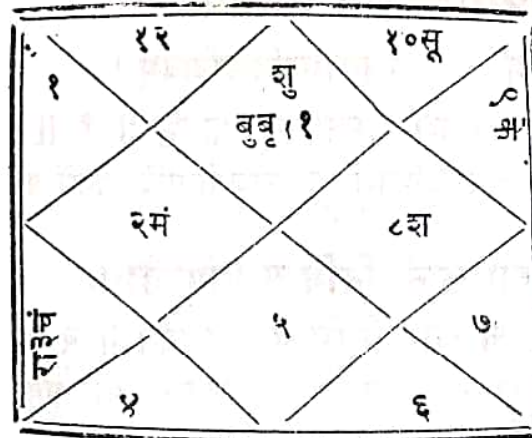 १२
१०सू
१
शु
बुबृ।१
९
के
२मं
८श
रा३चं
५
७
४
६